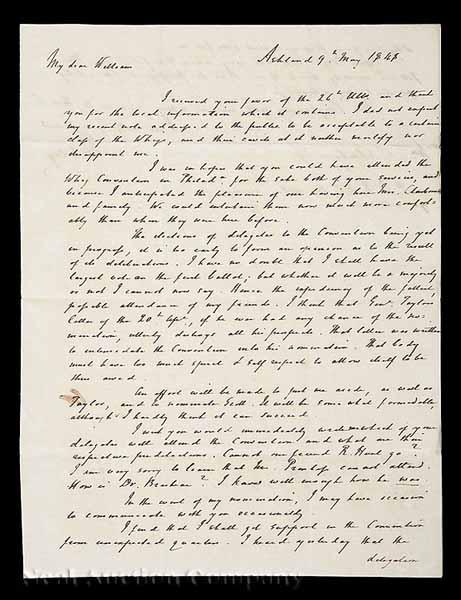 Ashland 9th May 1848
My dear William
I received your favor of the 26th Ulto. and thank
you for the local information which it contains. I did not expect
my recent note addressed to the public to be acceptable to a certain
class of the Whigs, and their conduct neither mortify nor
disappoint me.
I was in hopes that you could have attended the
Whig Convention in Philada. for the sake both of your services, and
because I anticipated the pleasure of our having here Mrs. Claiborne
and family. We could entertain them now much more comfort-
ably than when they were here before.
The elections of delegates to the Convention being yet
in progress, it is too early to form an opinion as to the result
of its deliberations. I have no doubt that I shall have the
largest vote on the first ballot; but whether it will be a majority
or not I cannot now say. Hence the expediency of the fullest
possible attendance of my friends. I think that Genl. Taylor's
letter of the 20th Apl., if he ever had any chance of the no-
mination, utterly destroys all his prospects. That letter was written
to intimidate the Convention into his nomination. That body
must have too much spirit & self respect to allow itself to be
thus awed.
An effort will be made to put me aside, as well as
Taylor, and to nominate Scott. It will be some what formidable,
although I hardly think it can succeed.
I wish you would immediately of your
delegates will attend the Convention and what are their
respective predilections. Cannot our friend R. Hunt go?
I am very sorry to learn that Mr. cannot attend.
How is Dr. ? I know well enough how he was.
In the event of my nomination, I may have occasion
to communicate with you occasionally.
I find that I shall get support in the Convention
from unexpected quarters. I heard yesterday that the
delegation
Neal Auction Company